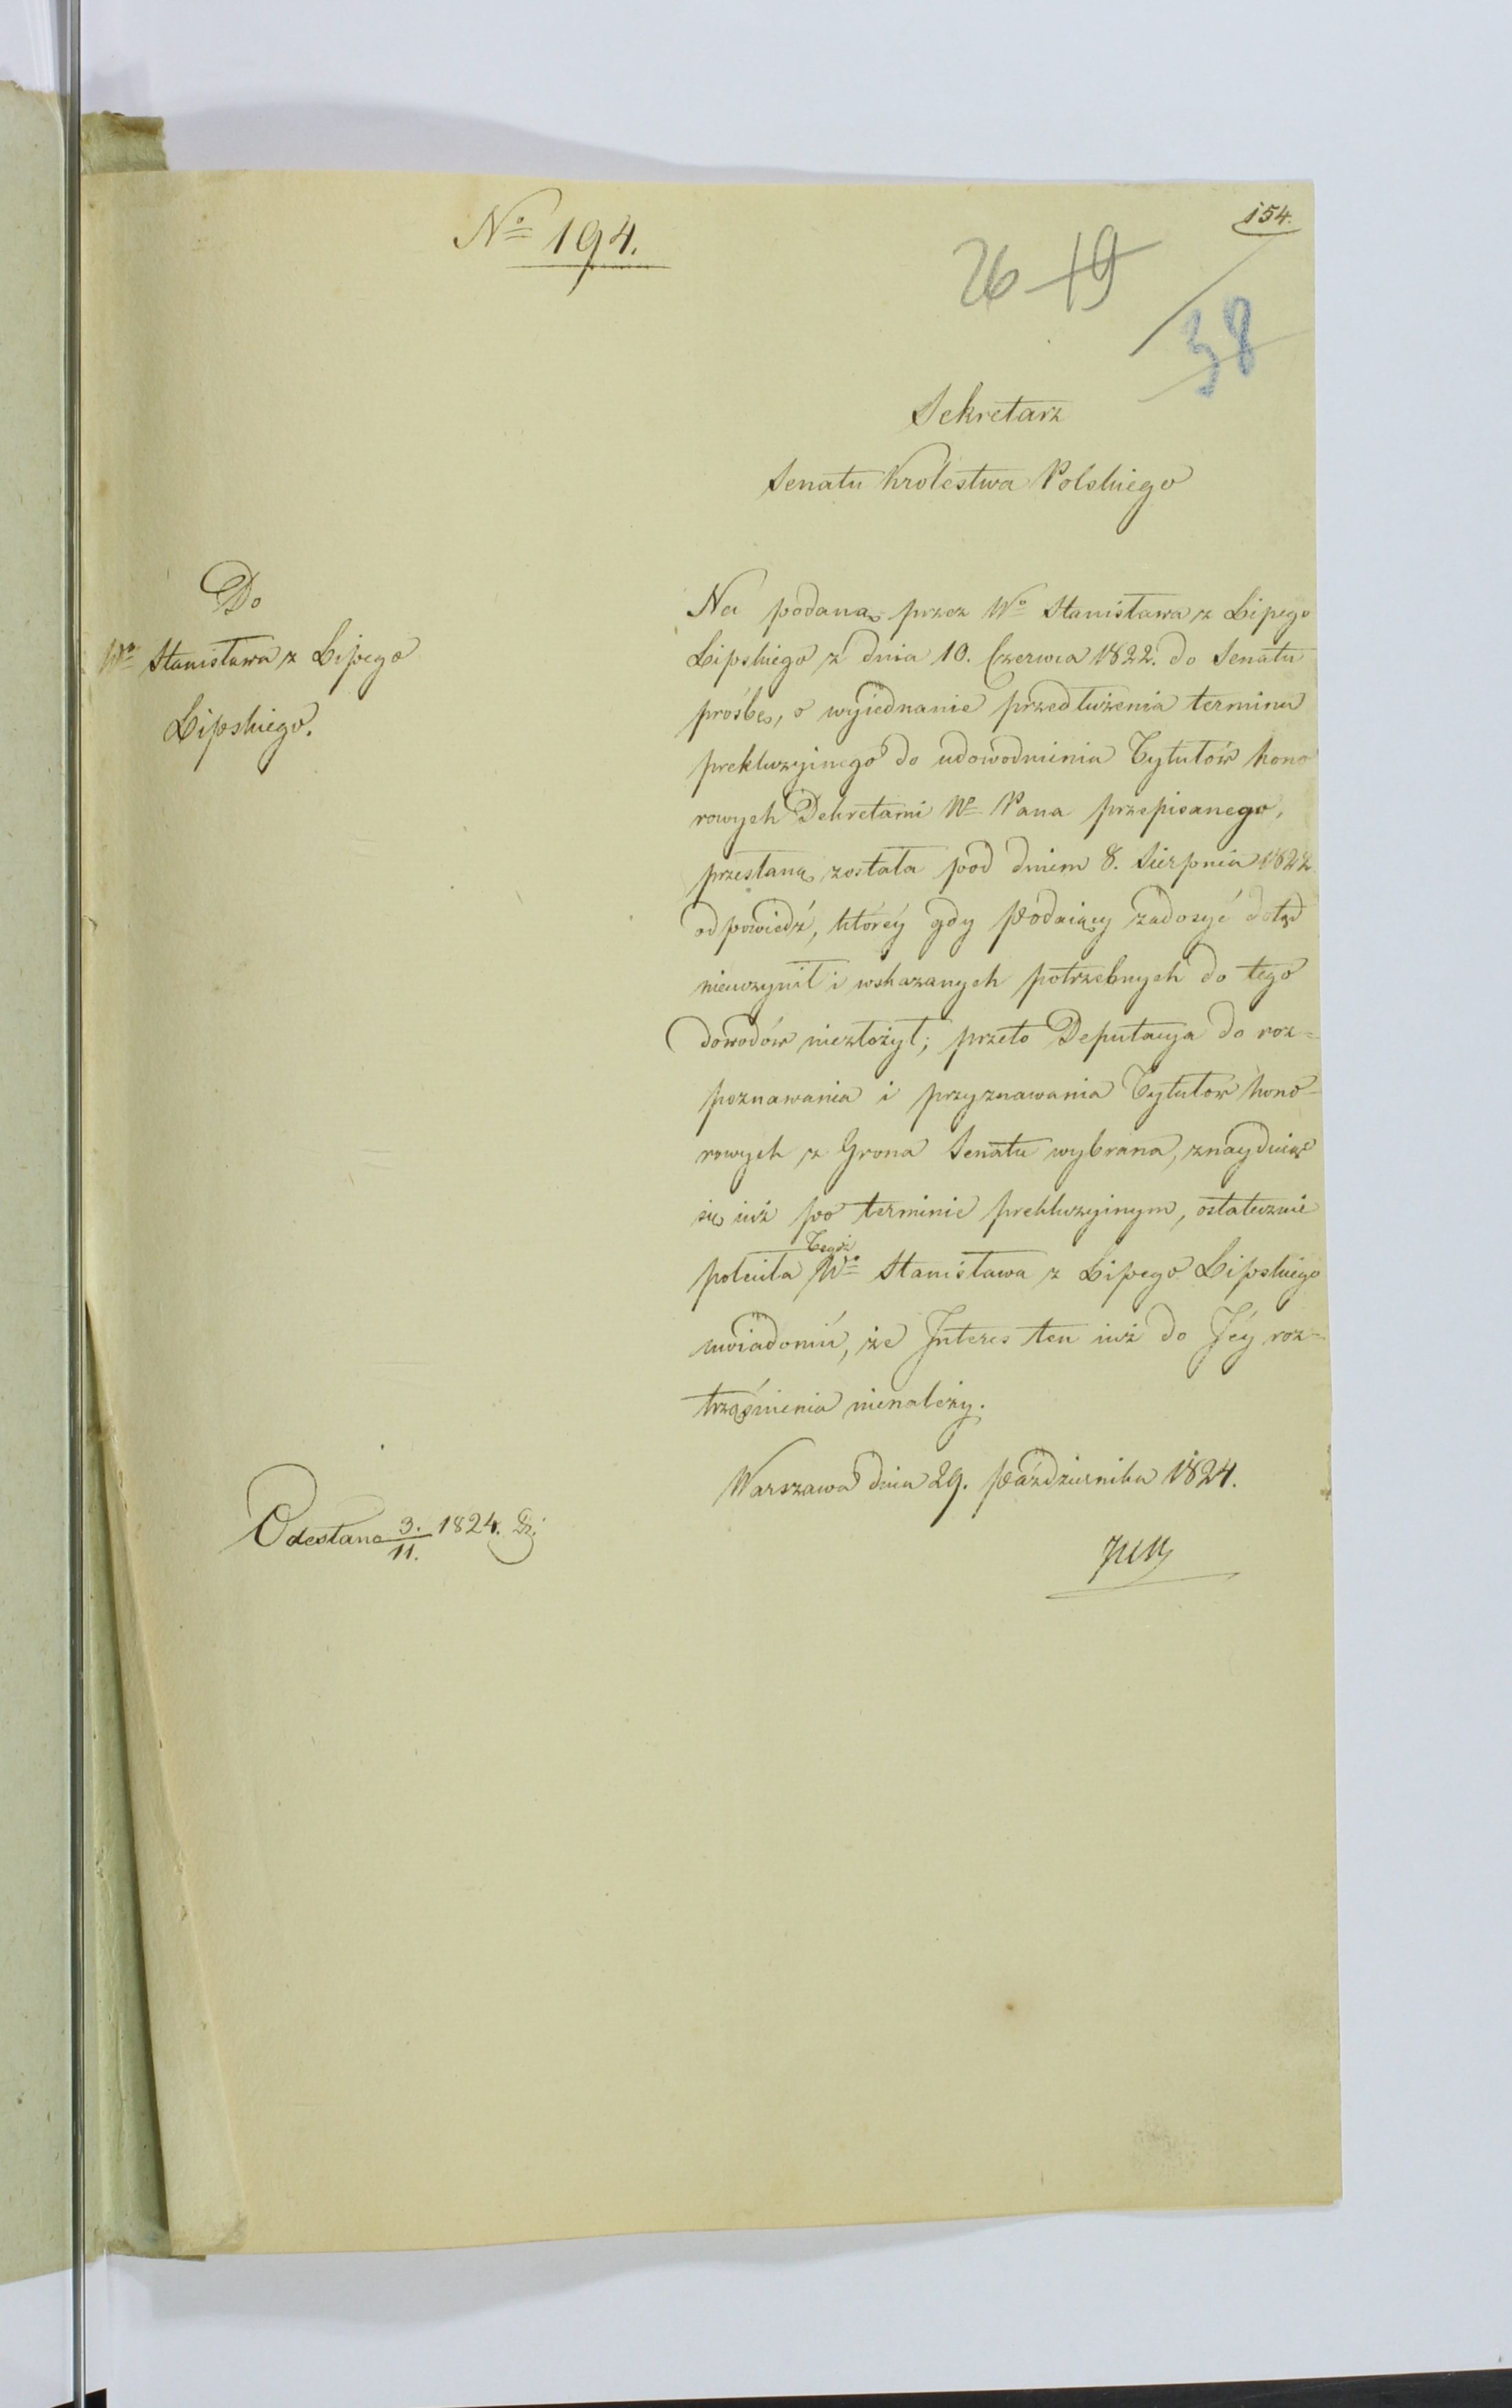 154.
No 194.
26 19
38
Sekretarz
Senatu Krolestwa Polskiego
Do
Wo Stanisława z Lipego
Lipskiego.
Na podaną przez Wo Stanisława z Lipego
Lipskiego z dnia 10. Czerwca 1822. do Senatu
prośbę, o wyiednanie przedłużenia terminu
prekluzyinego do udowodnienia Tytułów hono
rowych Dekretami Na Pana przepisanego,
przesłaną została pod dniem 8. Sierpnia 1822
odpowiedź, którey gdy Podaiący zadosyć dotąd
nieuczynił i wskazanych potrzebnych do tego
dowodów niezłożył; przeto Deputacya do roz=
poznawania i przyznawania Tytułów hono-
rowych z Grona Senatu wybrana, znayduiąc
się iuż po terminie prekluzyinym, ostatecznie
poleciła Tegoż Wo Stanisława z Lipego Lipskiego
uwiadomić, że Interes ten iuż do Jéy roz=
trząśnienia nienależy.
Warszawa dnia 29. Października 1824.
Odesłano 3./11. 1824.